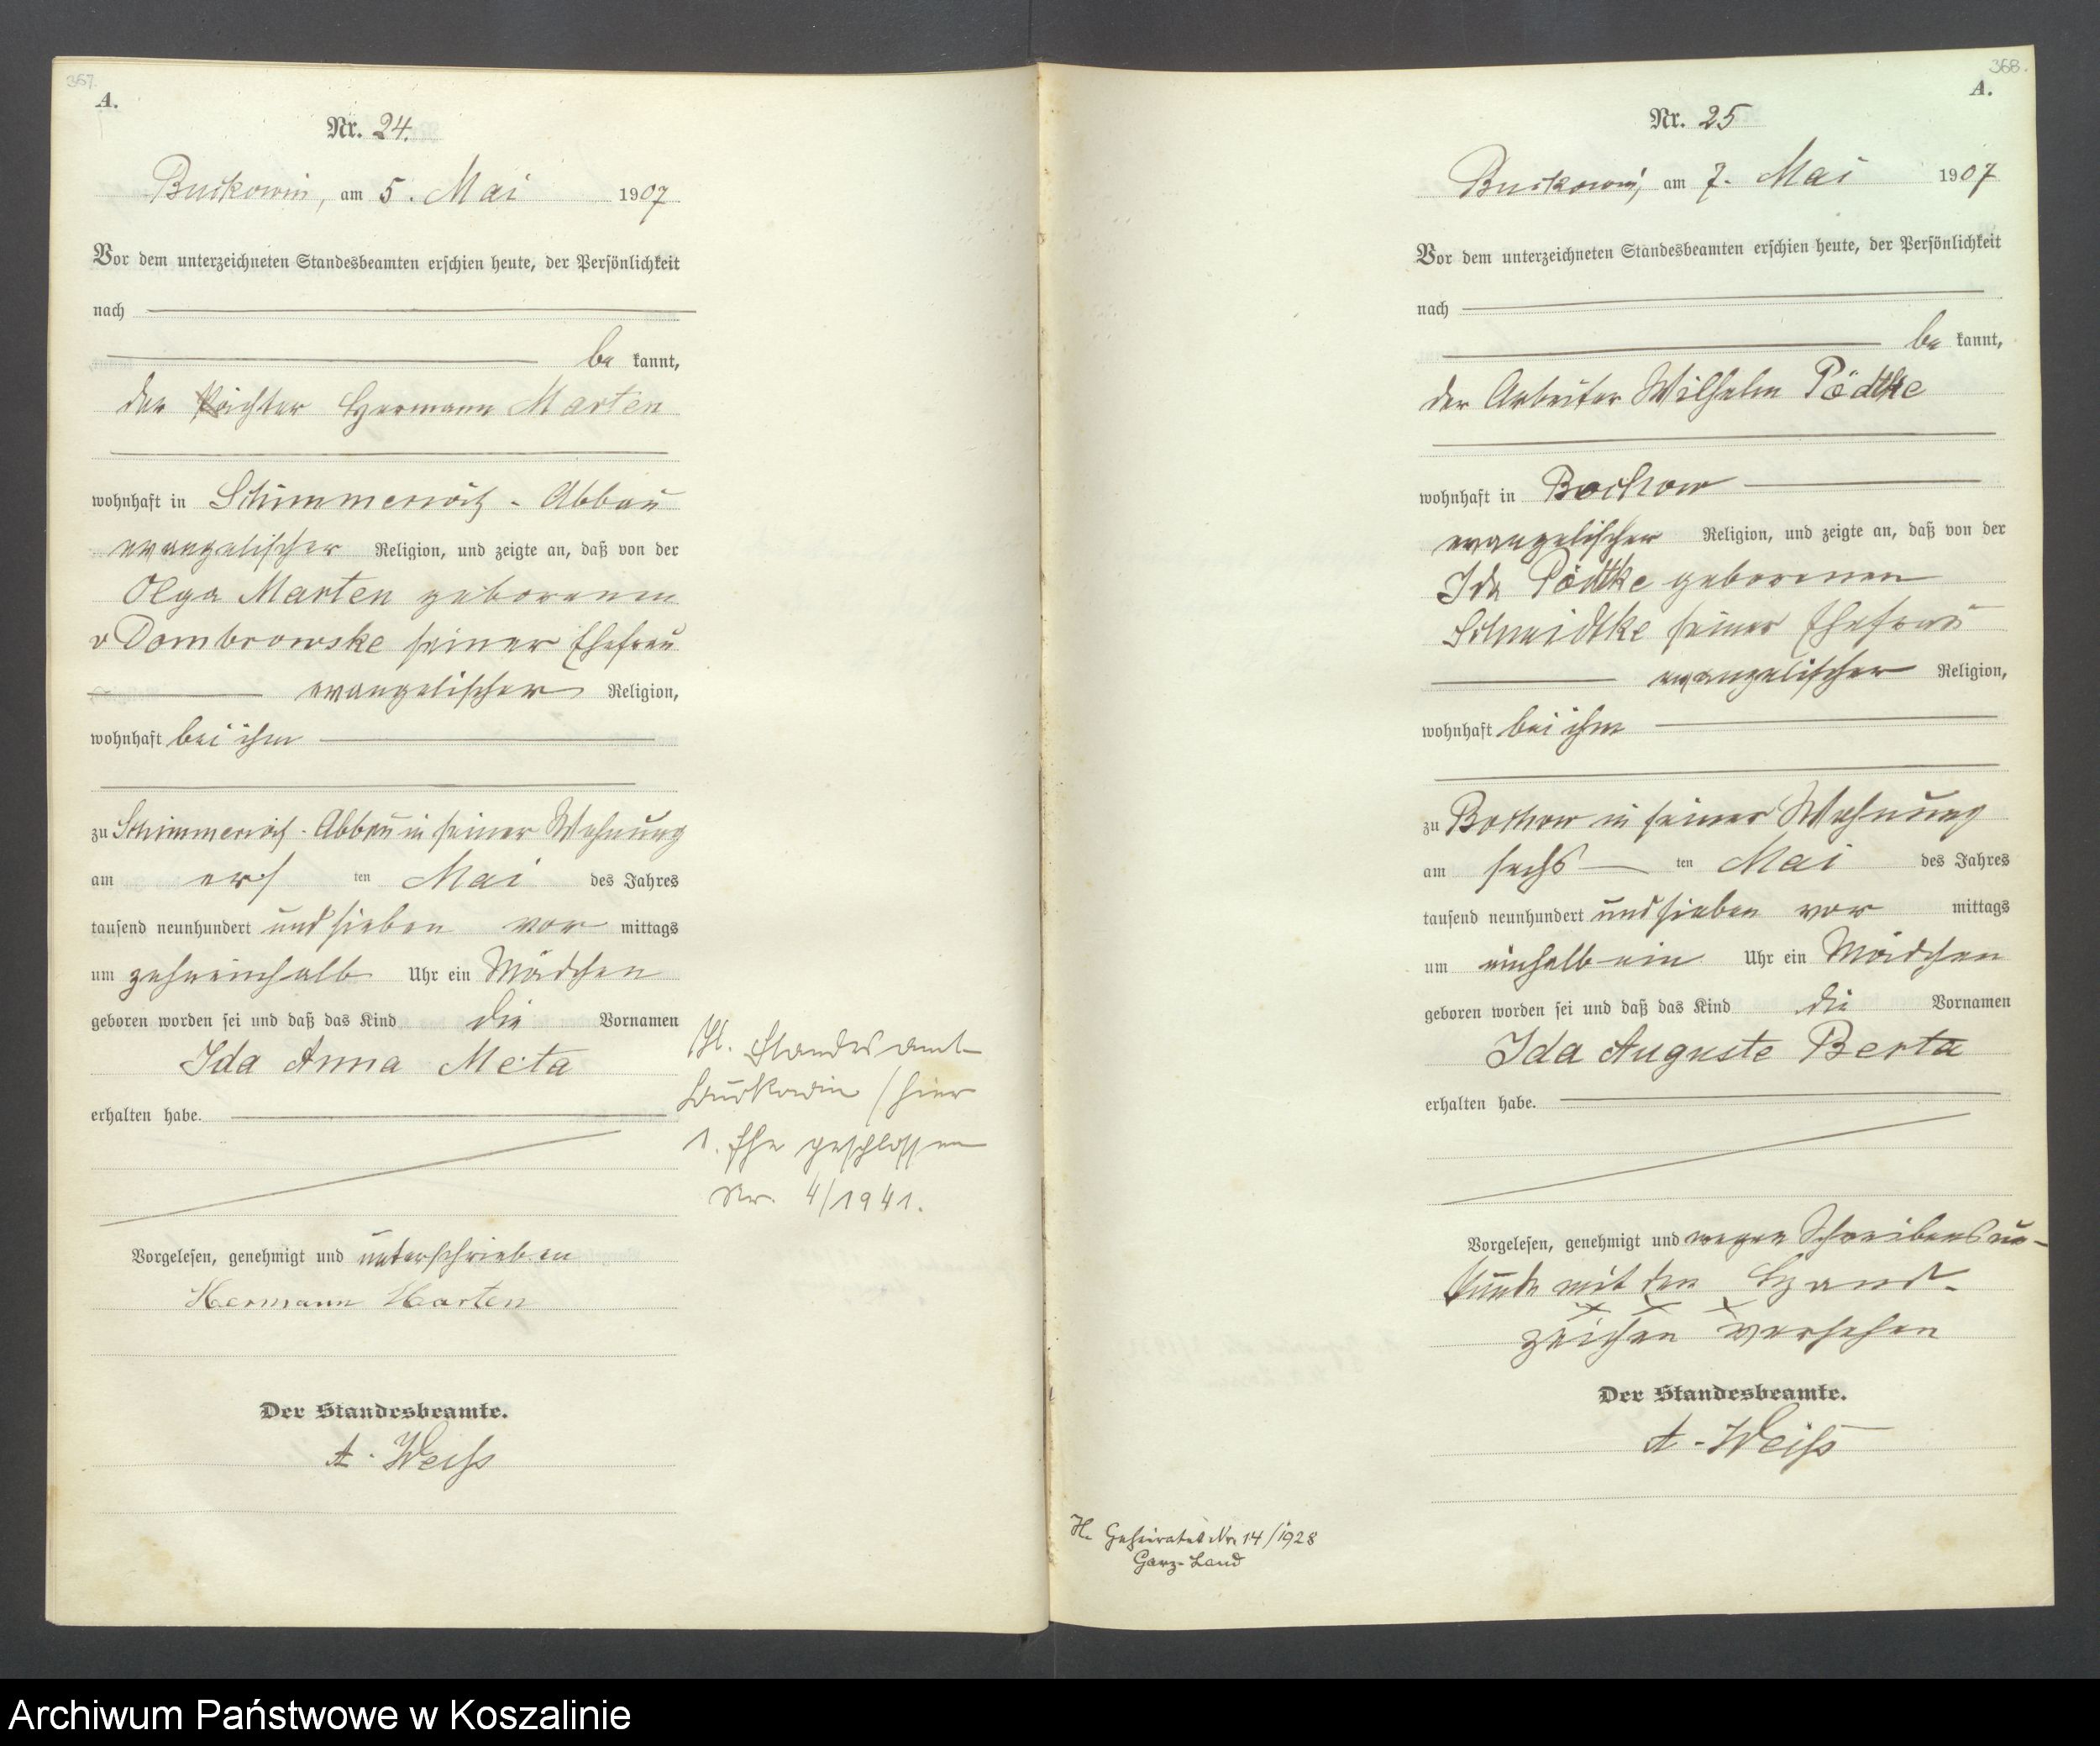 367.
A.
Nr. 24.
Buckowin, am 5. Mai 1907
Vor dem unterzeichneten Standesbeamten erschien heute, der Persönlichkeit
nach
be kannt,
der Pächter Hermann Marten
wohnhaft in Schimmerwitz - Abbau
evangelischer Religion, und zeigte an, daß von der
Olga Marten geborenen
v Dombrowske seiner Ehefrau
evangelischer Religion,
wohnhaft bei ihm
zu Schimmerwitz - Abbau in seiner Wohnung
am ers ten Mai des Jahres
tausend neunhundert und sieben vor mittags
um zehneinhalb Uhr ein Mädchen
geboren worden sei und daß das Kind die Vornamen
Ida Anna Meta
erhalten habe.
Vorgelesen, genehmigt und unterschrieben
Hermann Marten
Der Standesbeamte.
A. Weiß
Standesamt
Buckowin / hier
1. Ehe geschlossen
Nr. 4/1941.
368.
A.
Nr. 25
Buckowin, am 7. Mai 1907
Vor dem unterzeichneten Standesbeamten erschien heute, der Persönlichkeit
nach
be kannt,
der Arbeiter Wilhelm Pödtke
wohnhaft in Bochow
evangelischer Religion, und zeigte an, daß von der
Ida Pödtke geborenen
Schmidtke seiner Ehefrau
evangelischer Religion,
wohnhaft bei ihm
zu Bochow in seiner Wohnung
am sechs ten Mai des Jahres
tausend neunhundert und sieben vor mittags
um einhalb ein Uhr ein Mädchen
geboren worden sei und daß das Kind die Vornamen
Ida Auguste Berta
erhalten habe.
Vorgelesen, genehmigt und wegen Schreibensun-
kunde mit den Hand-
x x x
zeichen versehen
Der Standesbeamte.
A. Weiß
H. Geheiratet Nr. 14/1928
Garz-Land
Archiwum Państwowe w Koszalinie